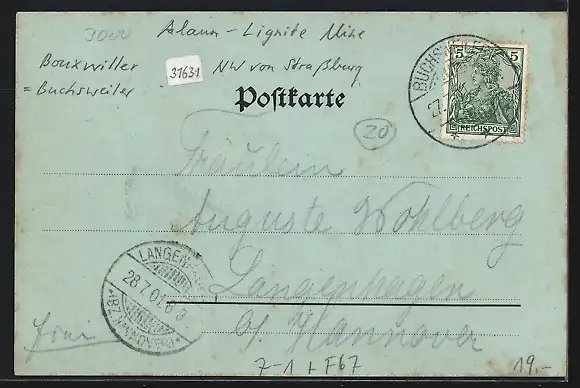 3000
Alaun - Lignite Mine
Bouxwiller
= Buchsweiler
31631
NW von Straßburg
BUCHSW
27.
5 5
REICHSPOST
Postkarte
20
Fräulein
Auguste Wohlberg
Langenhagen
b/ Hannover
LANGEN
28 7 01
(BZ. HANNOVER)
frei
7-1 + F67
19.-